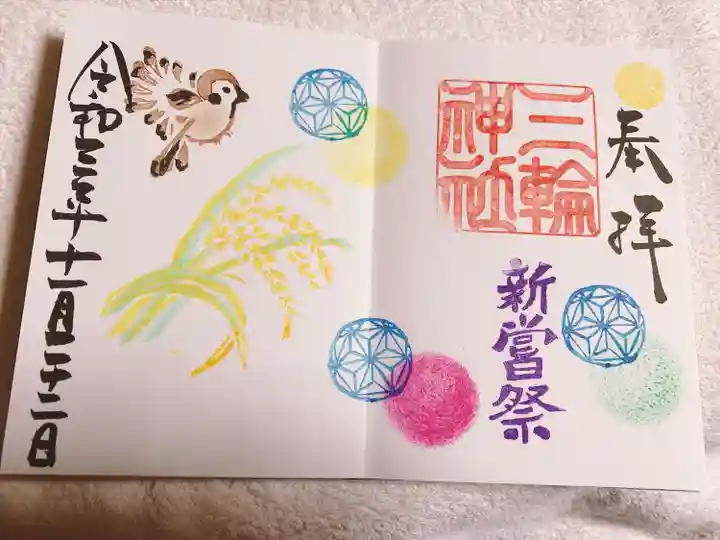 奉拝
三輪
神社
新嘗祭
令和三年十一月二十二日